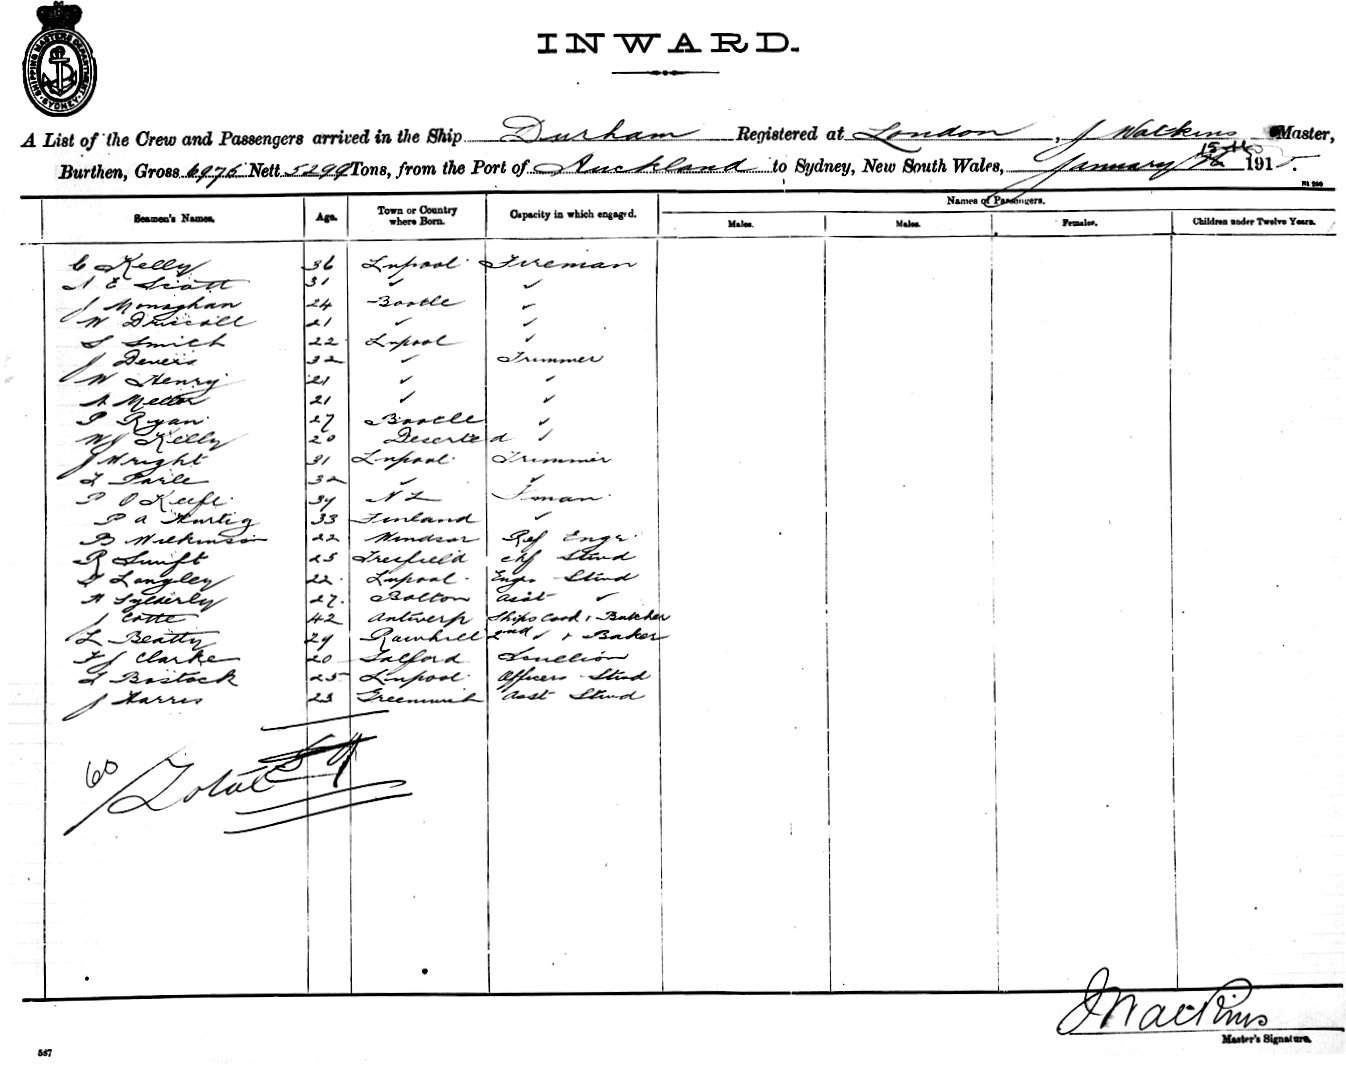 SHIPPING MASTERS DEPARTMENT SYDNEY
INWARD.
A List of the Crew and Passengers arrived in the Ship Durham Registered at London, J Watkins Master,
Burthen, Gross 6975 Nett 5299 Tons, from the Port of Auckland to Sydney, New South Wales, January 15th 1915.
Seamen's Names. Age. Town or Country where Born. Capacity in which engaged. Names of Passengers.
Males. Males. Females. Children under Twelve Years.
C Kelly 36 L'npool Fireman
A E Scott 31 ✓ ✓
J Monaghan 24 Bootle ✓
W Driscoll 21 ✓ ✓
S Smith 22 L'npool ✓
J Devers 32 ✓ Trimmer
W Henry 21 ✓ ✓
A Mellor 21 ✓ ✓
P Ryan 27 Bootle ✓
WJ Kelly 20 Deserted ✓
J Wright 31 L'npool Trimmer
T Farle 32 ✓ ✓
P O Keefe 39 N Z F'man
P A Hurtig 33 Finland ✓
B Wilkinson 22 Windsor Ref Engr
R Swift 25 chf Stwd
Langley 22 L'npool Engrs Stwd
H 27 Bolton Asst ✓
J Cotte 42 Antwerp Ships Cook & Butcher
L Beatty 29 Rainhill 2nd ✓ & Baker
F J Clarke 20 Salford Scullion
T Bostock 25 L'npool Officers Stwd
J Harris 23 Greenwich Asst Stwd
60
Total 59
J Watkins
Master's Signature.
587